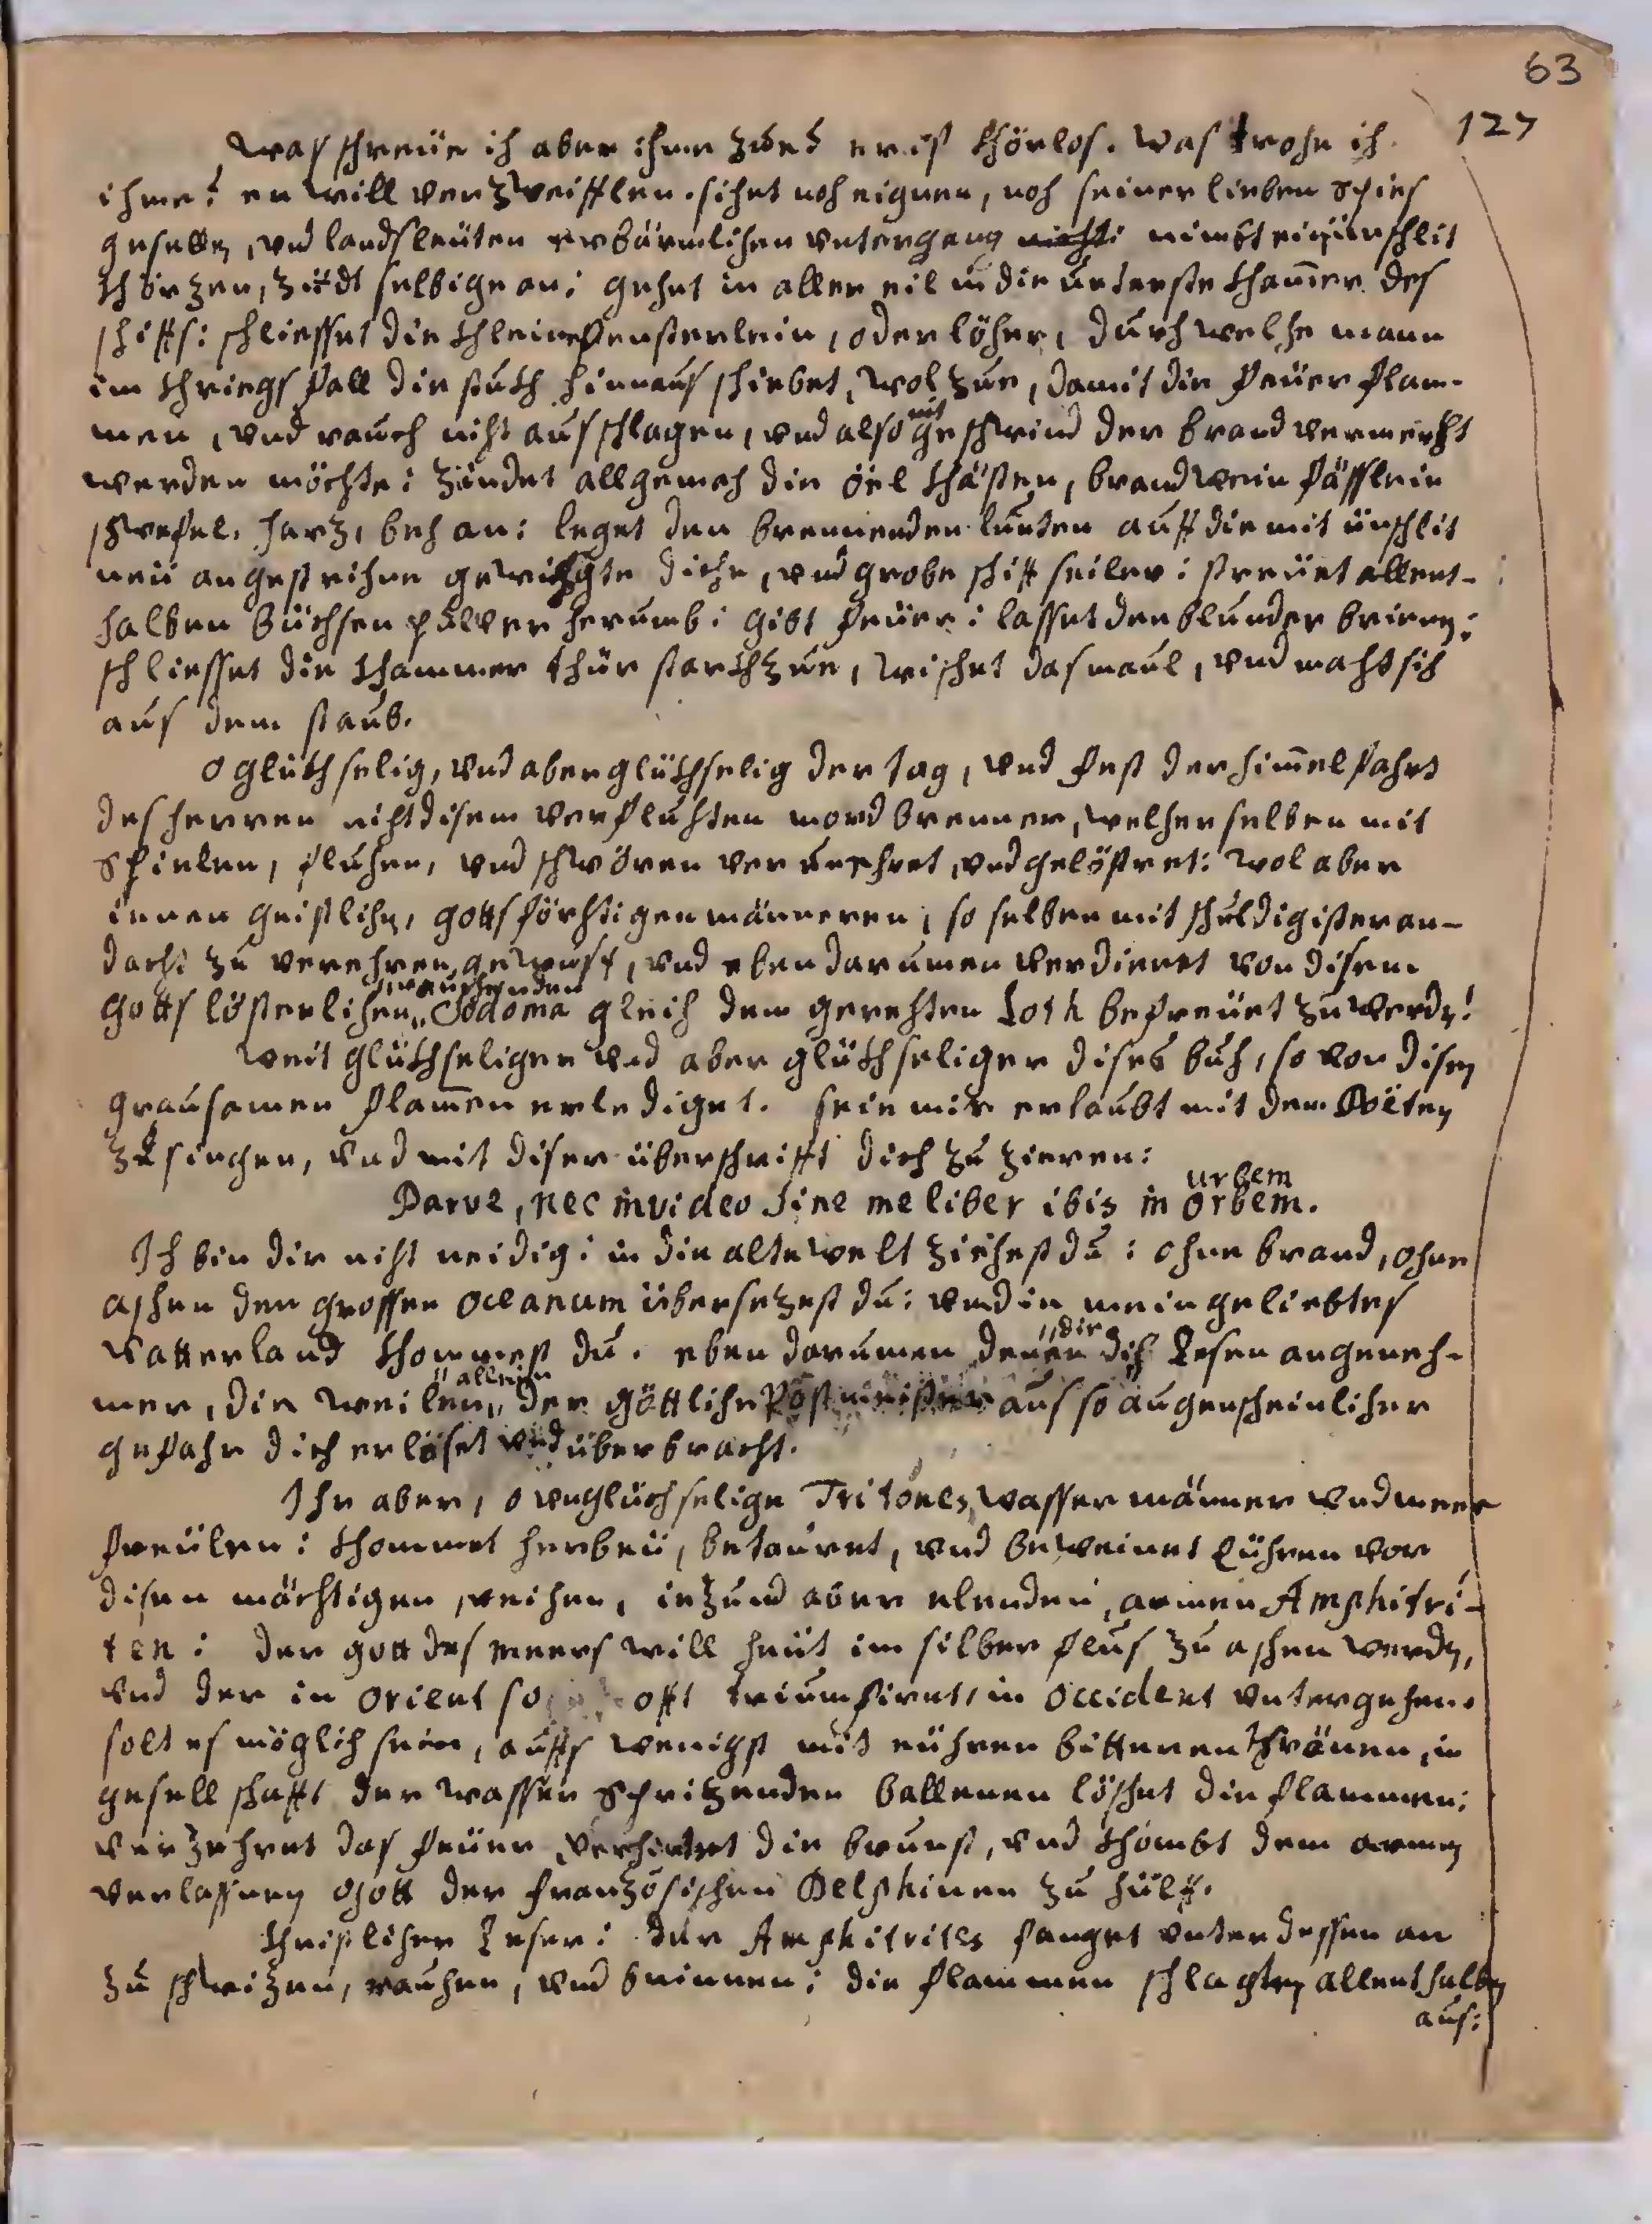 63
127
was schreüe ich aber ihme zue? er ist khörlos. was trohe ich
ihme? er will verzweifflen. sihet noh eignen, noh seiner lieben spies
gesellen, vnd landsleüten erbärmlichen vntergang nicht: nimbt ein ünschlit
khörzen, zündt selbige an: gehet in aller eil in die unterste khammer des
schiffs: schliesset die khleine fensterlein, oder löher, durch welhe mann
im khriegs fall die stukh hinnaus schiebet, wol zue, damit die feüer flam-
men, vnd rauch niht ausschlagen, vnd also nit geschwind der brand vermerkht
werden möchte: zündet allgemach die öel khästen, brandwein fässlein
schwefel, harz, beh an: leget den brennenden lunten auff die mit ünschlit
neü angestrihne gewichste dickhe, vnd grobe schiff seiler: streüet allent-
halben büchsen pulver herumb: gibt feüer: lasset den blunder brinen:
schliesset die khammer thür starkh zue, wischet das maul, vnd maht sich
aus dem staub.
O glükhselig, vnd aber glükhselig der tag, vnd fest der himmelfahrt
des herren niht disem verfluhten mordbrenner, welher selben mit
Spielen, fluhen, vnd schwören verunehret, vnd gelöstret: wol aber
ienen geistlihen, gottsförhtigen männeren, so selben mit schuldigister an-
dacht zu verehren gewust, vnd eben darumen verdienet von disem
rauchenden
gotts lösterlihen Sodoma gleich dem gerehten Loth befreüet zu werden!
weit glükhseliger vnd aber glükhseliger dises buch, so von disen
grausamen flammen erlediget. seie mir erlaubt mit dem Poëten
zu singen, vnd mit diser überschrifft dich zu zieren:
urbem
Parve, nec invideo sine me liber ibis in orbem.
Ich bin dir niht neidig: in die alte welt ziehest du: ohne brand, ohne
ashen den grossen Oceanum übersetzest du: vnd in mein geliebtes
vatterland khommest du. eben darumen denen die dih lesen angeneh-
allein
mer, die weilen der göttlihe Postmeister aus so augenscheinlicher
gefahr dich erlöset vnd überbracht.
Ihr aber, o vnglückhselige Tritones, wassermänner vnd meer
freülen: khommet herbeü, betauret, vnd beweinet Eühren vor
disen mächtigen, reihen, ietzund aber elenden, armen Amphitri-
ten: der gott des meers will heüt im silber flus zu ashen werden,
vnd der in Orient so offt triumfiret, in Occident vntergehen.
solt es möglich sein, auffs wenigst mit eühren bitteren thränen, in
gesellschafft der wasser Spritzenden ballenen löschet die flammen:
verzehret das feüer, verhindret die brunst, vnd khombt dem armen
verlassnen Gott der französischen Delphinen zu hülff.
Khristliher Leser: der Amphitrites fanget vnterdessen an
zu schwitzen, rauhen, vnd brinnen: die flammen schlagten allenthalben
aus: